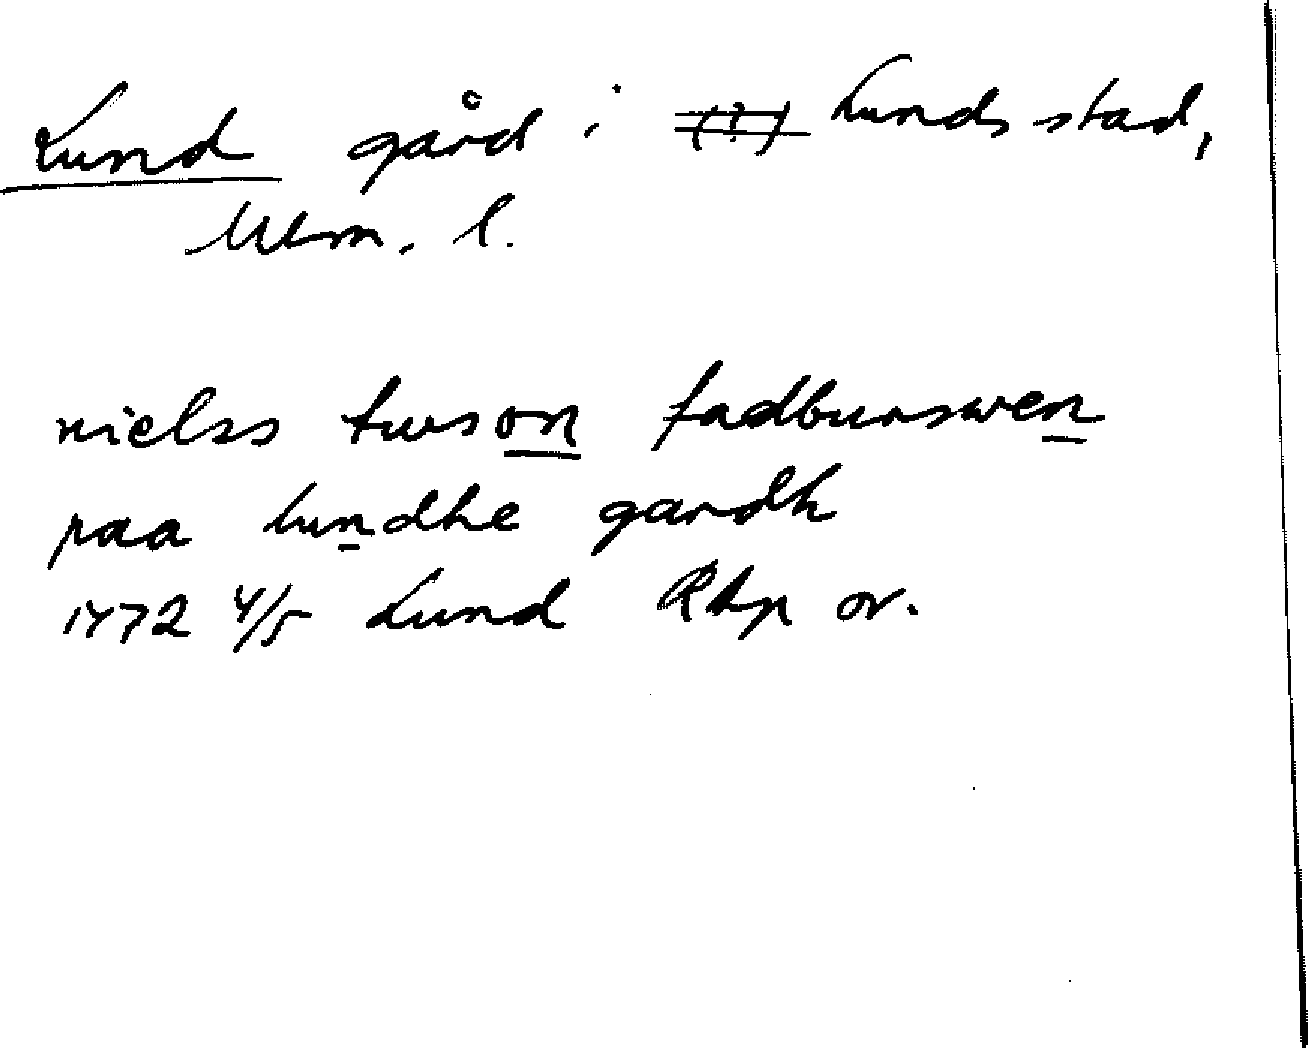 Lund gård i (?) Lunds stad,
Mlm. l.
nielss twson fadburswen
paa lundhe gardh
1472 4/5 Lund Rhp or.